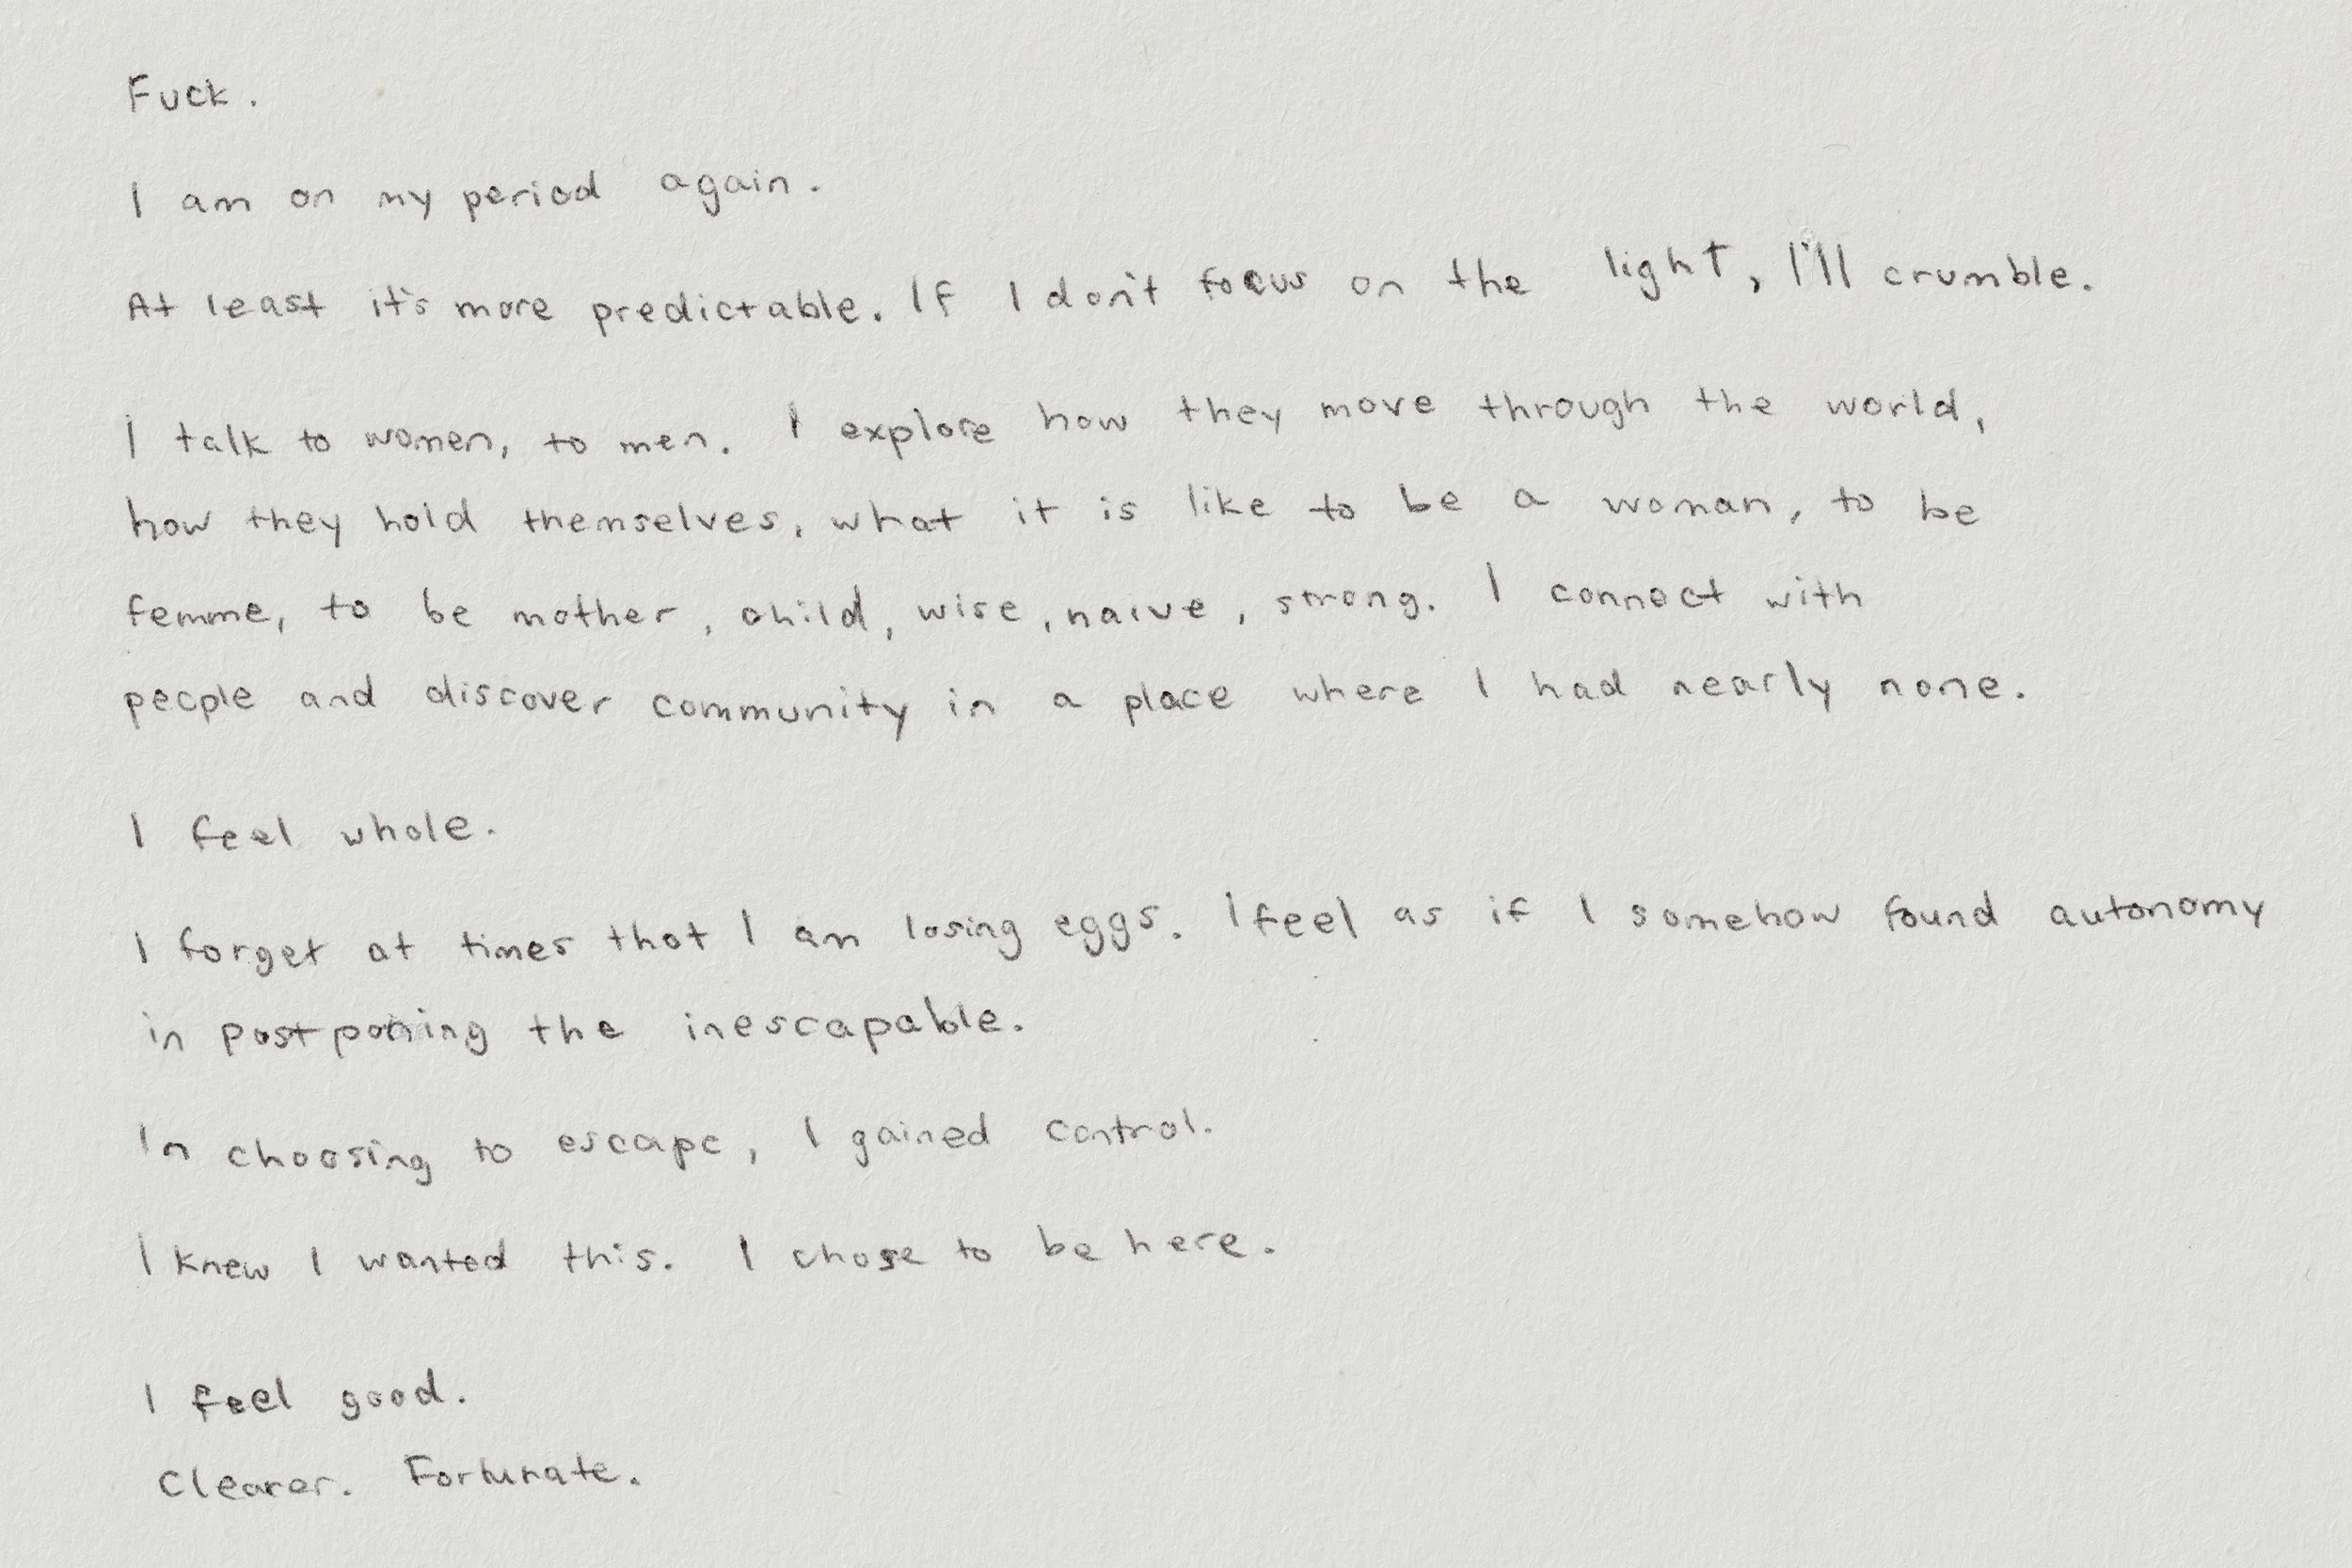 Fuck.
I am on my period again.
At least it's more predictable. If I don't focus on the light, I'll crumble.
I talk to women, to men. I explore how they move through the world,
how they hold themselves, what it is like to be a woman, to be
femme, to be mother, child, wise, naive, strong. I connect with
people and discover community in a place where I had nearly none.
I feel whole.
I forget at times that I am losing eggs. I feel as if I somehow found autonomy
in postponing the inescapable.
In choosing to escape, I gained control.
I knew I wanted this. I chose to be here.
I feel good.
Clearer. Fortunate.